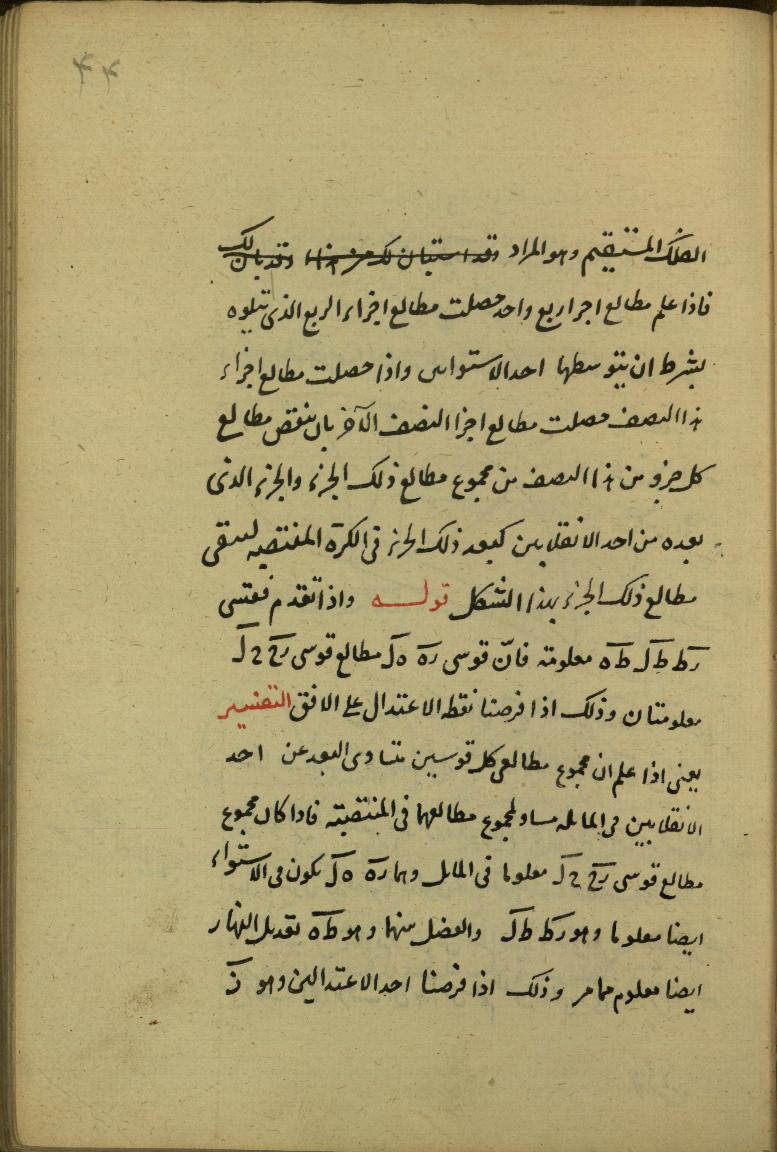 ٤٤
الفلك المستقيم وهو المراد وقد استبان لك من هذا وقد بان لك
فاذا علم مطالع اجزا ربع واحد حصلت مطالع اجزاء الربع الذى يتلوه
بشرط ان يتوسطهما احد الاستوايين واذا حصلت مطالع اجزاء
هذا النصف حصلت مطالع اجزا النصف الآخر بان ينقص مطالع
كل جزو من هذا النصف من مجموع مطالع ذلك الجزء والجزء الذى
بعده من احد الانقلابين كبعد ذلك الجزء فى الكرة المنتصبه ليبقى
مطالع ذلك الجزء بهذا الشكل قوله واذا تقدم فقسى
ركط طل طه معلومته فانّ قوسى ره هل مطالع قوسى رح حل
معلومتان وذلك اذا فرضنا نقط الاعتدال على الافق التفسير
يعنى اذا علم ان مجموع مطالعى كل قوسين متساوى البعد عن احد
الانقلابين فى المايله مساو لمجموع مطالعهما فى المنتصبته فاذا كان مجموع
مطالع قوسى رح حل معلوما فى المايل وهما ره هل يكون فى الاستواء
ايضا معلوما وهو ركط طل والفضل بينهما وهو طه تعديل النهار
ايضا معلوم مما مر وذلك اذا فرضنا احد الاعتدالين وهو